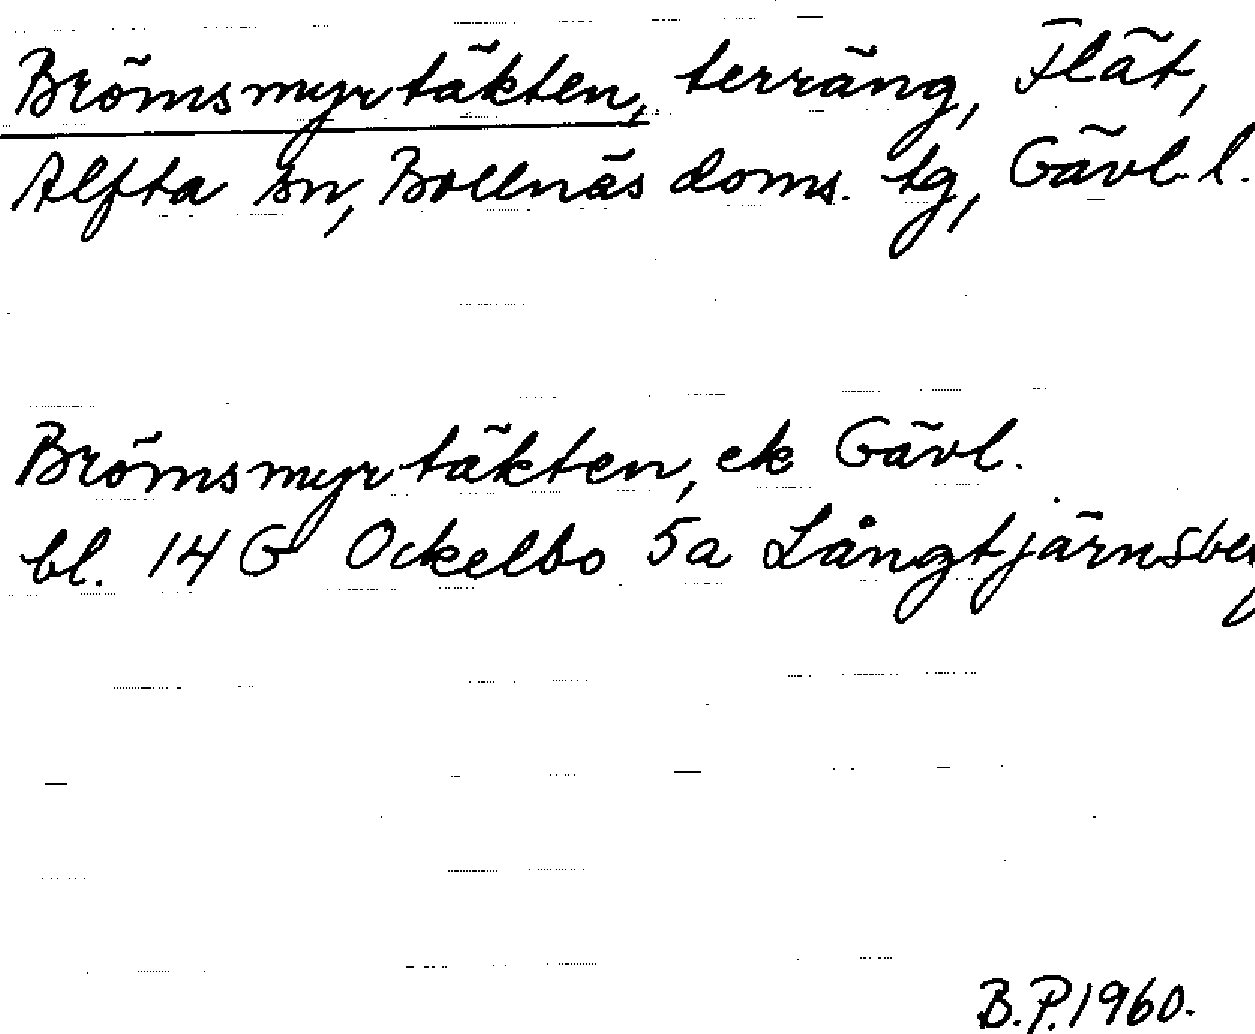 Brömsmyrtäkten, terräng, Flät,
Alfta sn, Bollnäs doms. tg, Gävl. l.
Brömsmyrtäkten, ek Gävl.
bl. 14 G Ockelbo 5a Långtjärnsberg
B.P. 1960.